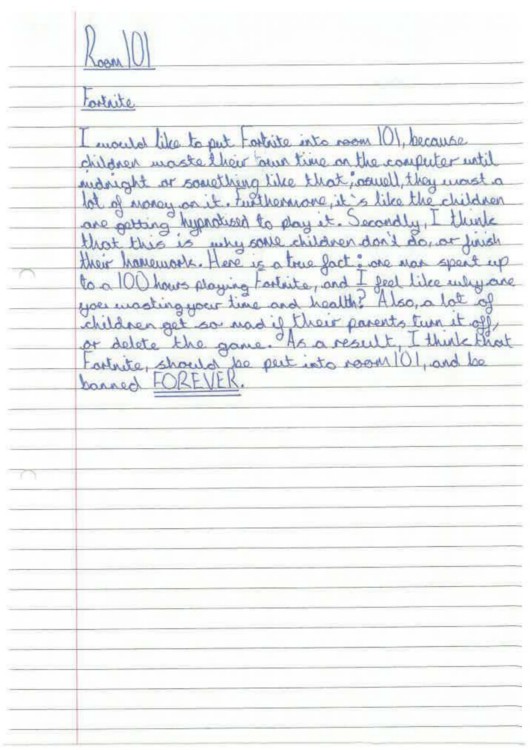 Room 101
Fortnite
I would like to put Fortnite into room 101, because
children waste their own time on the computer until
midnight or something like that; aswell, they wast a
lot of money on it. Furthermore, it's like the children
are getting hypnotised to play it. Secondly, I think
that this is why some children don't do, or finish
their homework. Here is a true fact: one man spent up
to a 100 hours playing Fortnite, and I feel like why are
you wasting your time and health? Also, a lot of
children get so mad if their parents turn it off,
or delete the game. As a result, I think that
Fortnite, should be put into room 101, and be
banned FOREVER.